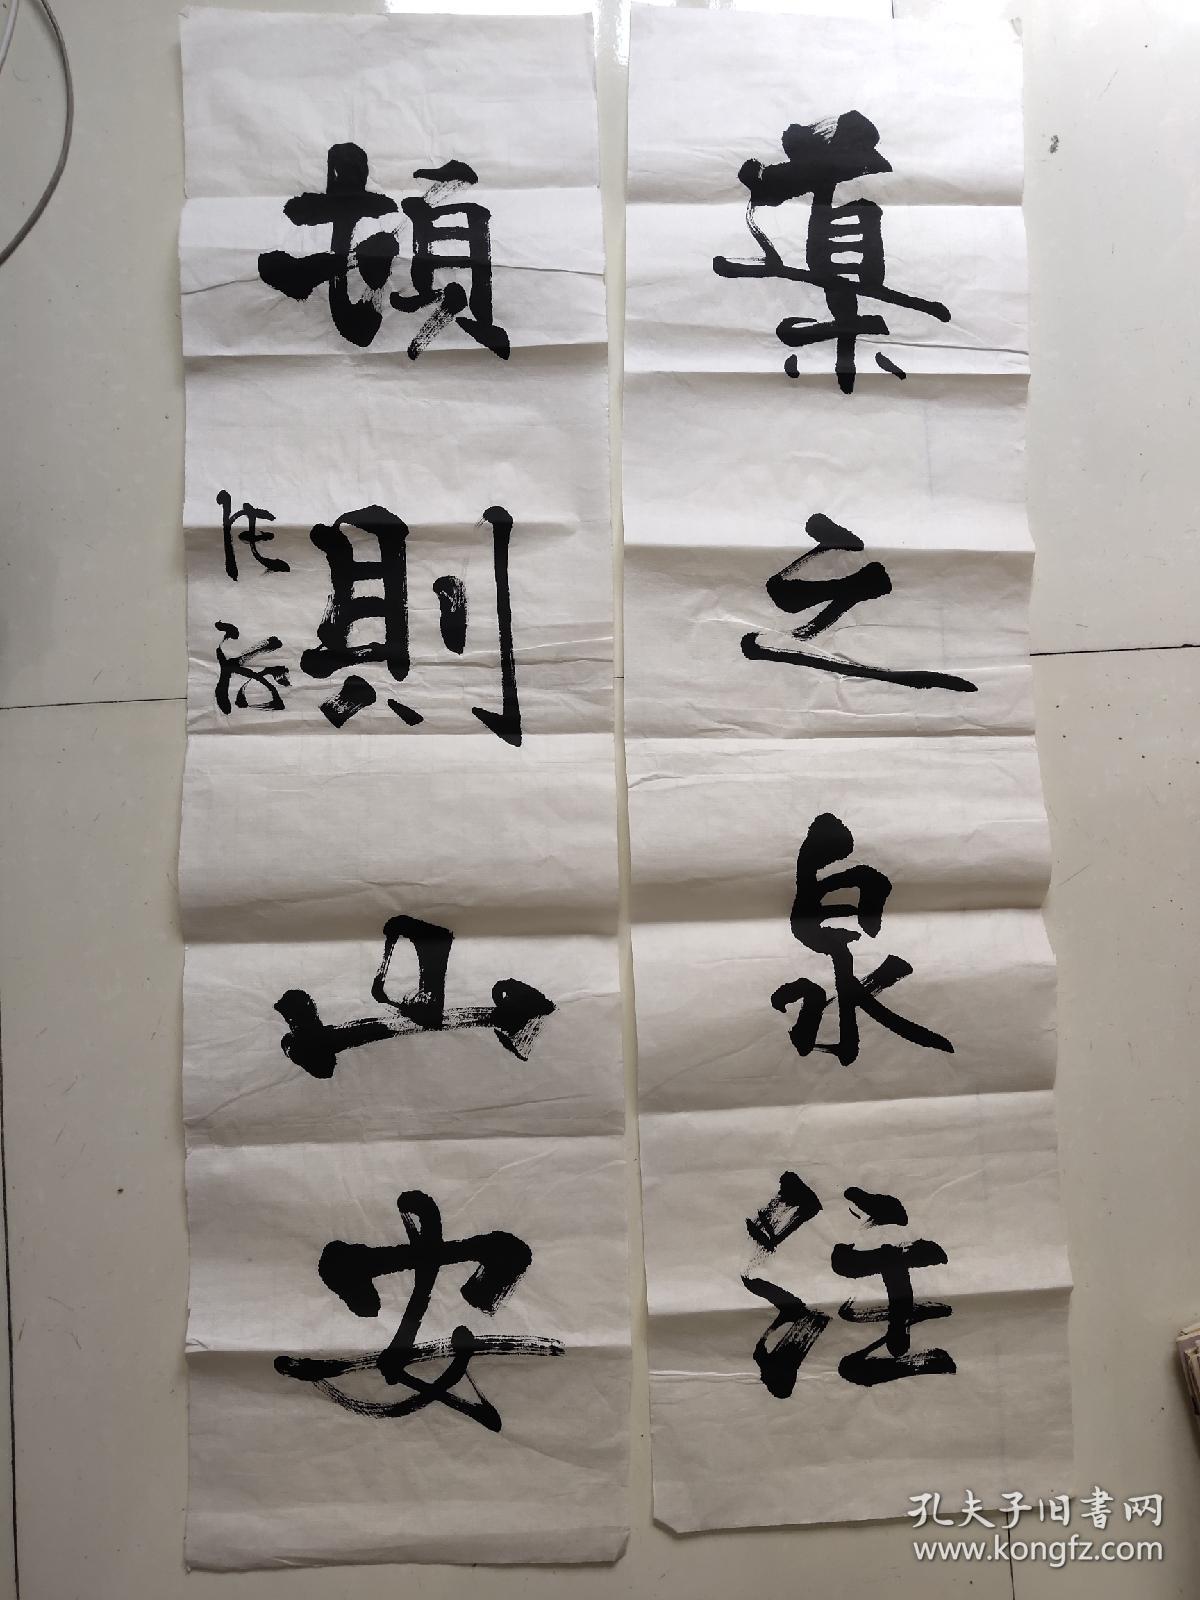 導之泉注
頓則山安
张
孔夫子旧書网
www.kongfz.com